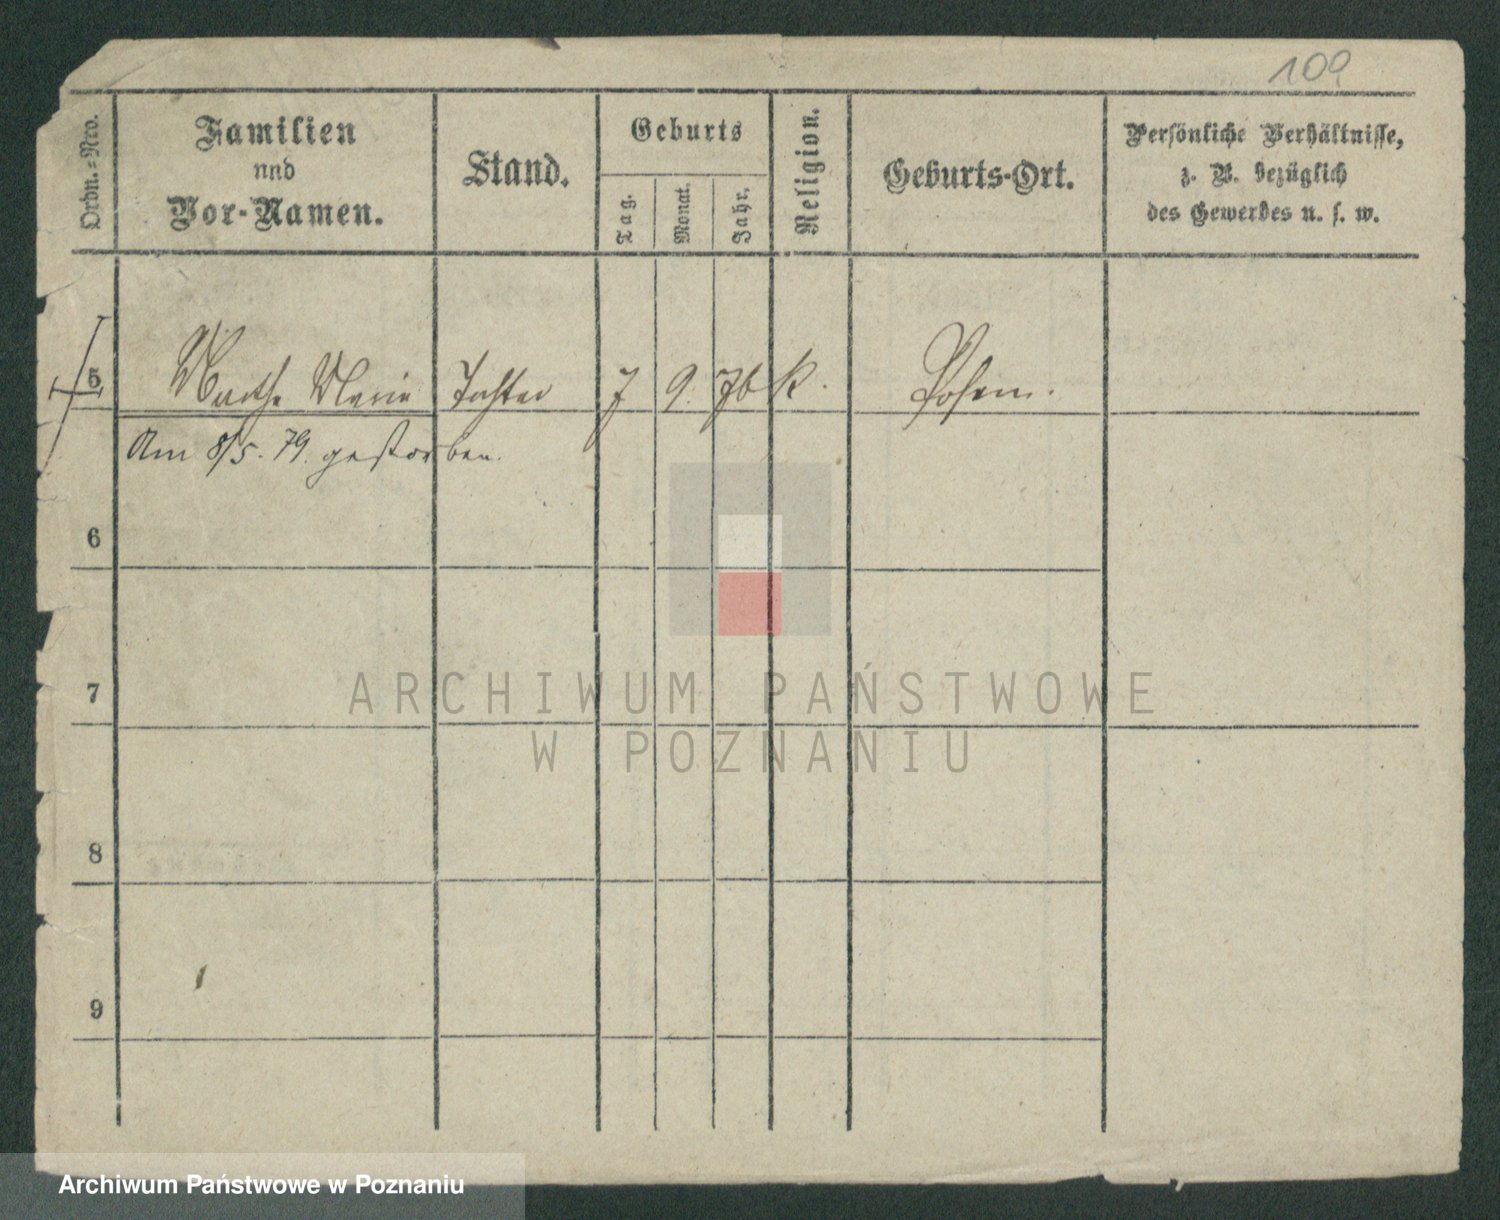 109
Ordn.=Nro.
Familien
und
Vor-Namen.
Stand.
Geburts
Tag.
Monat.
Jahr.
Religion.
Geburts-Ort.
Persönliche Verhältnisse,
z. B. bezüglich
des Gewerbes u. s. w.
5 Marthe Marie Tochter 7 9. 76 K. Posen.
Am 8/5. 79. gestorben.
6
7
8
9
ARCHIWUM PAŃSTWOWE
W POZNANIU
Archiwum Państwowe w Poznaniu